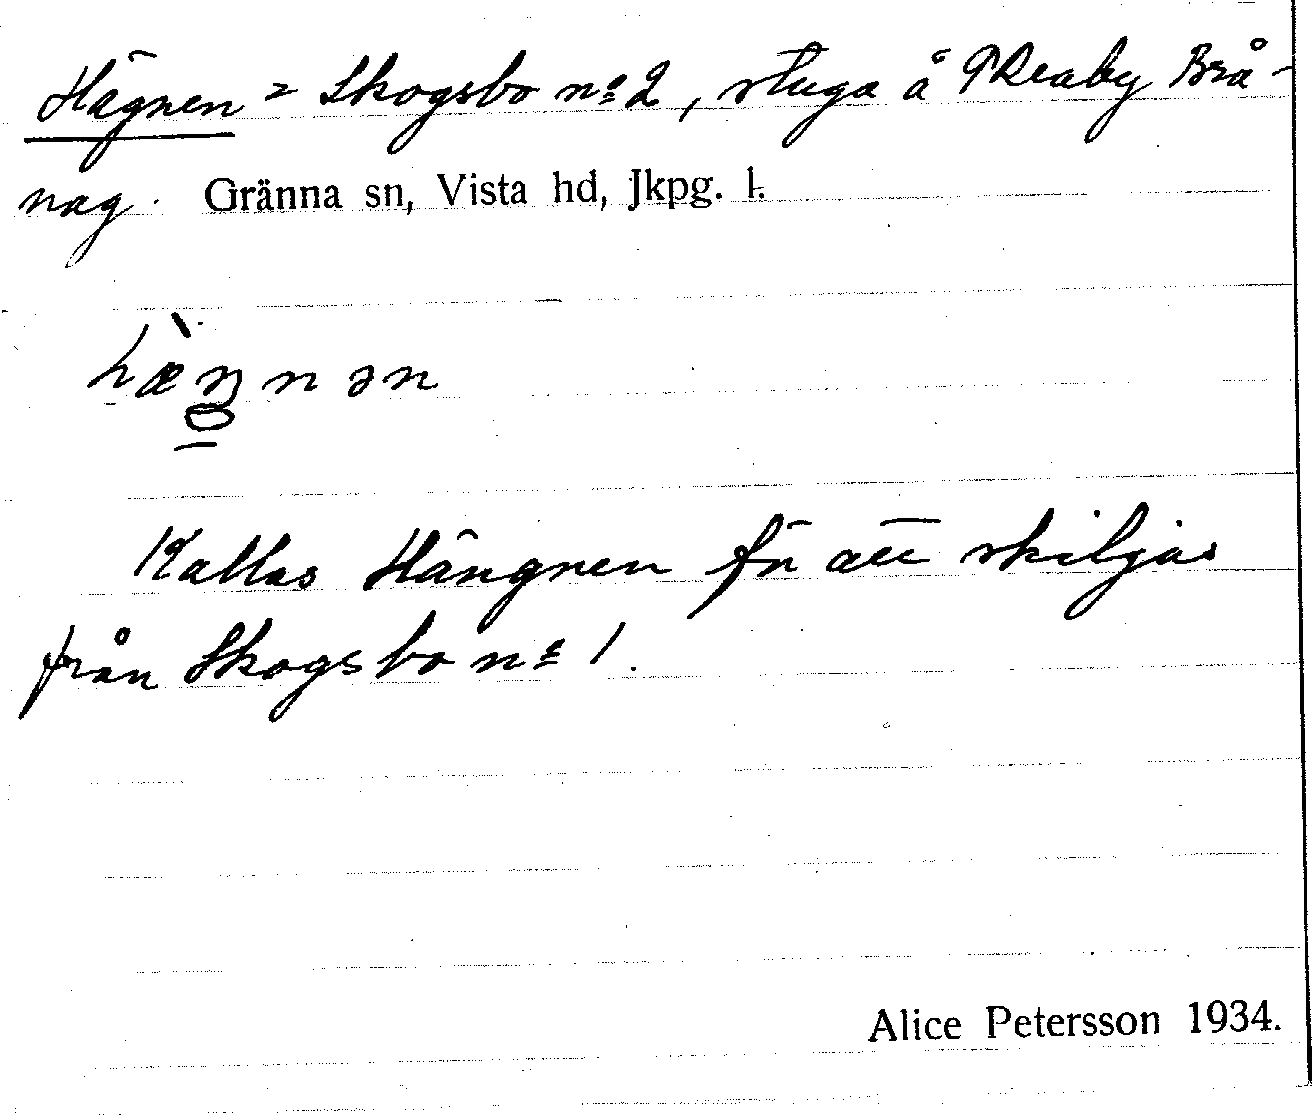 Hägnen = Skogsbo nº 2, stuga å Reaby Brå-
nag. Gränna sn, Vista hd, Jkpg. l.
hæŋnən
Kallas Hängnen för att skiljas
från Skogsbo nº 1.
Alice Petersson 1934.